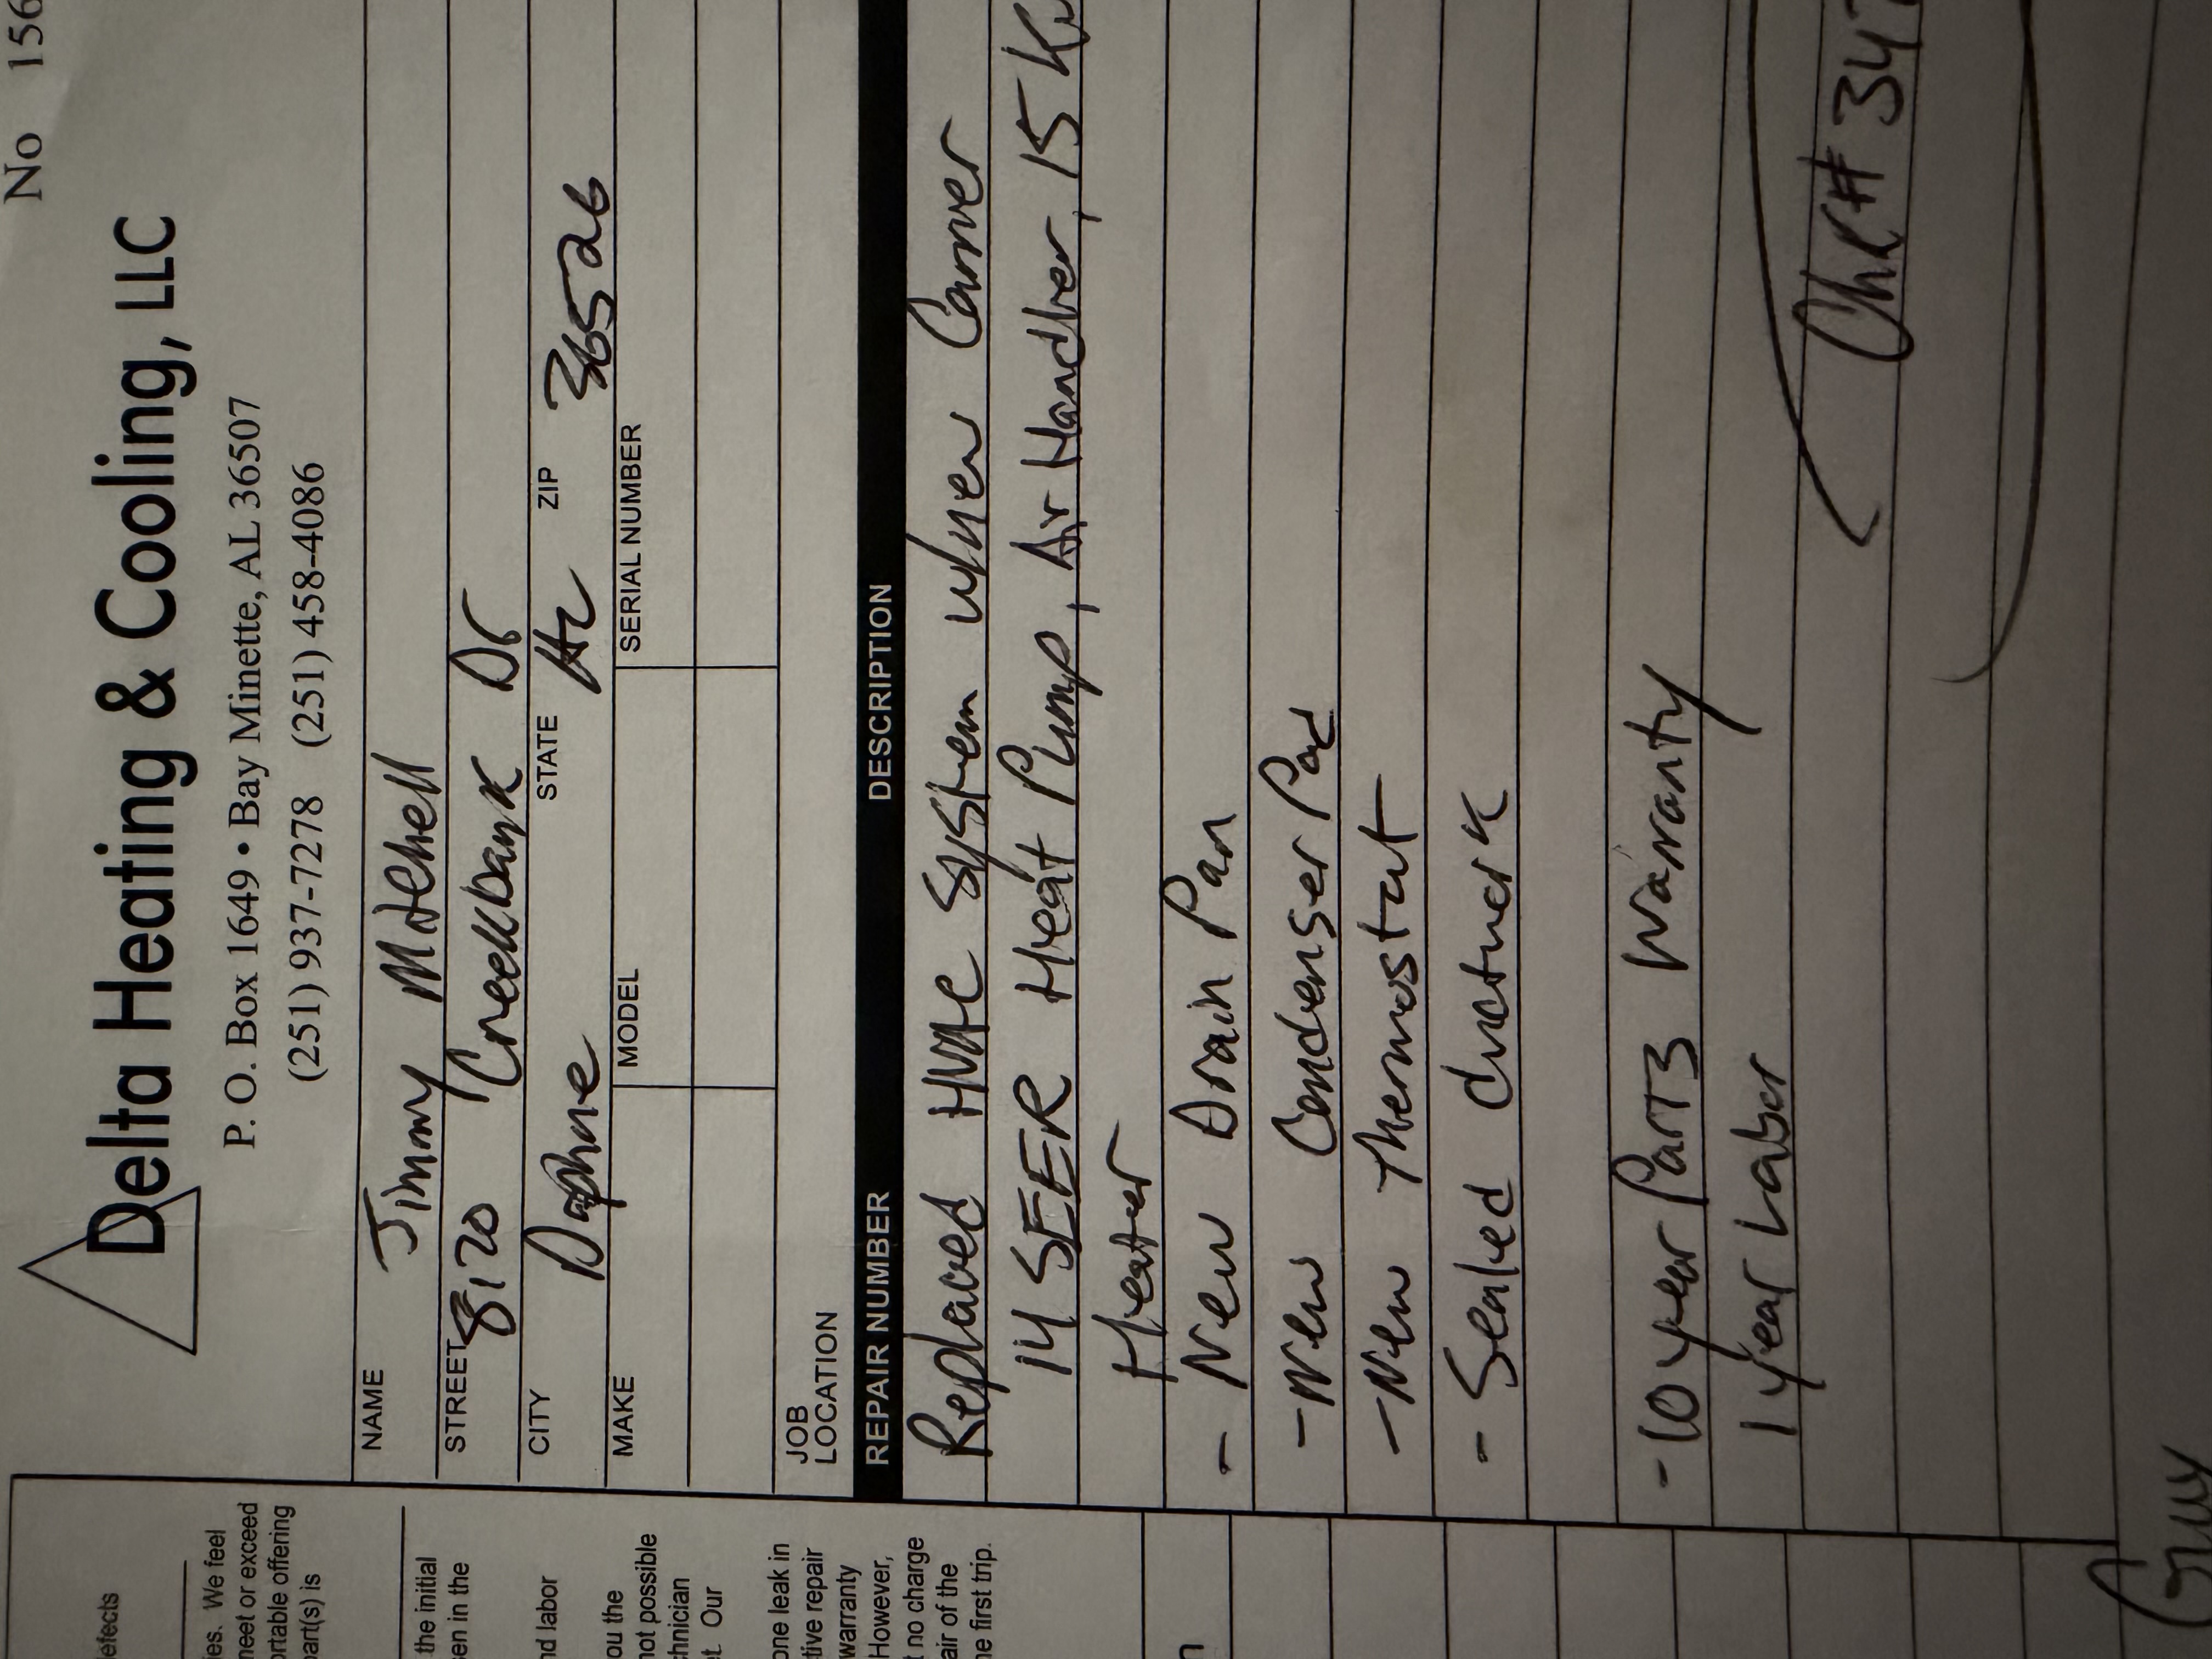 No 156
Delta Heating & Cooling, LLC
P. O. Box 1649 • Bay Minette, AL 36507
(251) 937-7278 (251) 458-4086
NAME Jimmy Mitchell
STREET 8170 Creekbank Dr
CITY Daphne STATE AL ZIP 36526
MAKE MODEL SERIAL NUMBER
JOB
LOCATION
REPAIR NUMBER DESCRIPTION
Replaced HVAC System w/new Carrier
14 SEER Heat Pump, Air Handler, 15 Kw
Heater
- New Drain Pan
- New Condenser Pad
- New Thermostat
- Sealed ductwork
- 10 year Parts Warranty
1 year Labor
Chk# 347
efects
ies. We feel
neet or exceed
ortable offering
part(s) is
the initial
en in the
nd labor
ou the
not possible
chnician
t. Our
one leak in
tive repair
warranty
However,
t no charge
air of the
ne first trip.